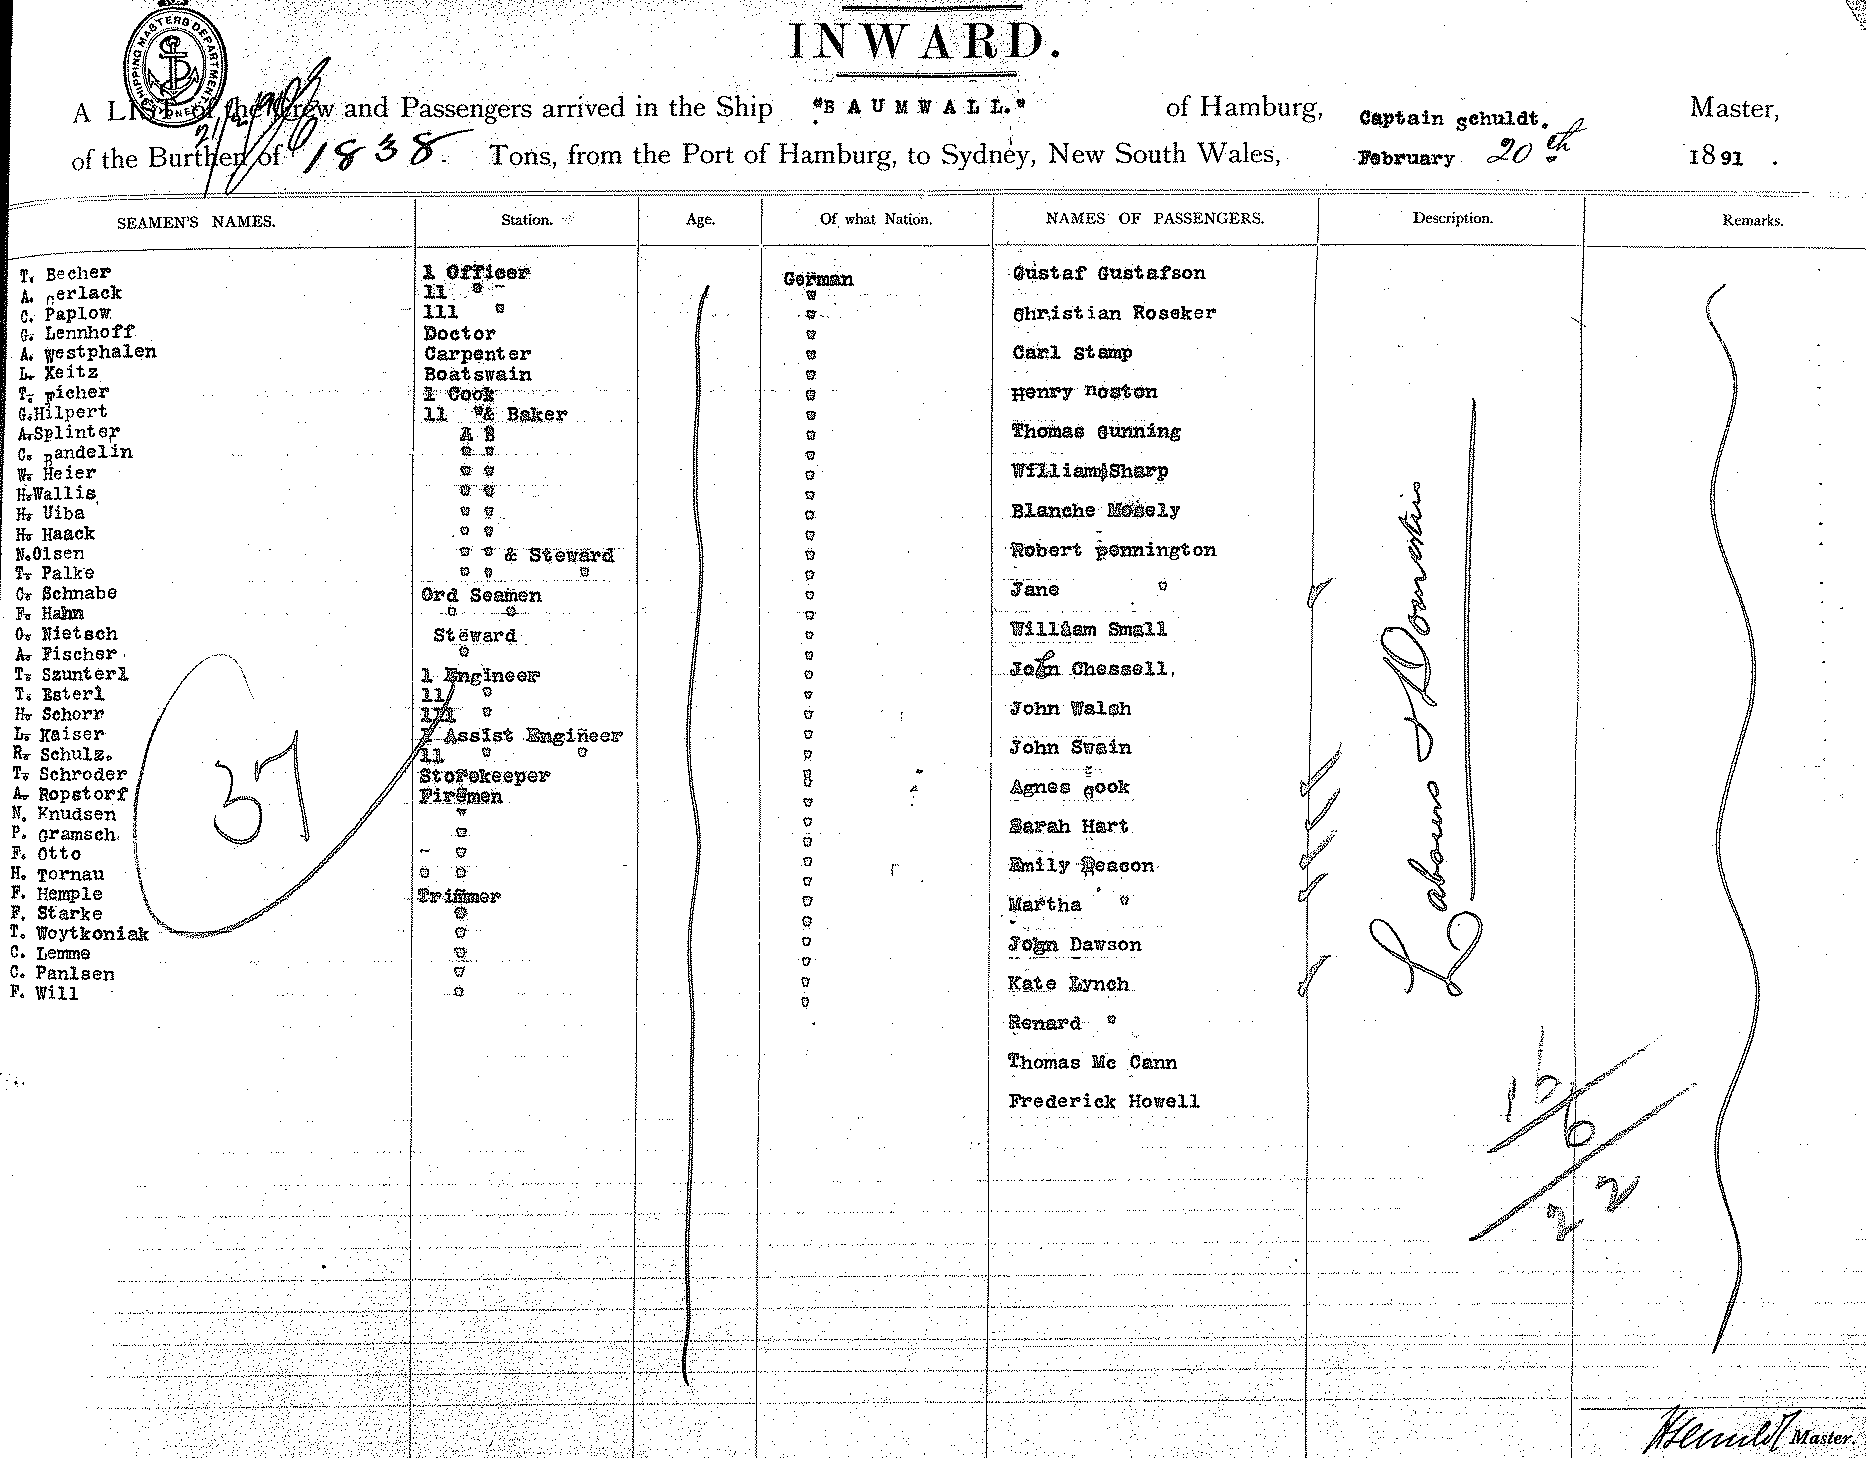 INWARD.
SHIPPING MASTERS DEPARTMENT
A LIST of the Crew and Passengers arrived in the Ship "BAUMWALL." of Hamburg, Captain Schuldt. Master,
of the Burthen of 1838. Tons, from the Port of Hamburg, to Sydney, New South Wales, February 20th 1891.
SEAMEN'S NAMES. Station. Age. Of what Nation. NAMES OF PASSENGERS. Description. Remarks.
T. Becher 1 Officer German
A. Gerlack 11 "
C. Paplow 111 " "
G. Lennhoff Doctor "
A. Westphalen Carpenter "
L. Keitz Boatswain "
T. Picher 1 Cook "
G.Hilpert 11 "& Baker "
A.Splinter A B "
C. Bandelin " " "
W. Heier " " "
H.Wallis " " "
H. Uiba " " "
H. Haack " " "
N.Olsen " " & Steward "
T. Palke " " " "
C. Schnabe Ord Seamen "
F. Hahn " " "
O. Nietsch Steward "
A. Fischer " "
T. Szunterl 1 Engineer "
T. Esterl 11 " "
H. Schorr 111 " "
L. Kaiser 1 Assist Engineer "
R. Schulz. 11 " " "
T. Schroder Storekeeper "
A. Ropstorf Firemen "
N. Knudsen " "
P. Gramsch " "
F. Otto " "
H. Tornau " " "
F. Hemple Trimmer "
F. Starke " "
T. Woytkoniak " "
C. Lemme " "
C. Panlsen " "
F. Will " "
37
Gustaf Gustafson
Christian Roseker
Carl Stamp
Henry Noston
Thomas Gunning
William Sharp
Blanche Mosely
Robert Pennington
Jane "
William Small
John Chessell,
John Walsh
John Swain
Agnes Cook
Sarah Hart
Emily Deacon
Martha "
John Dawson
Kate Lynch
Renard "
Thomas Mc Cann
Frederick Howell
Labours & Domestics
16
6
22
Master.